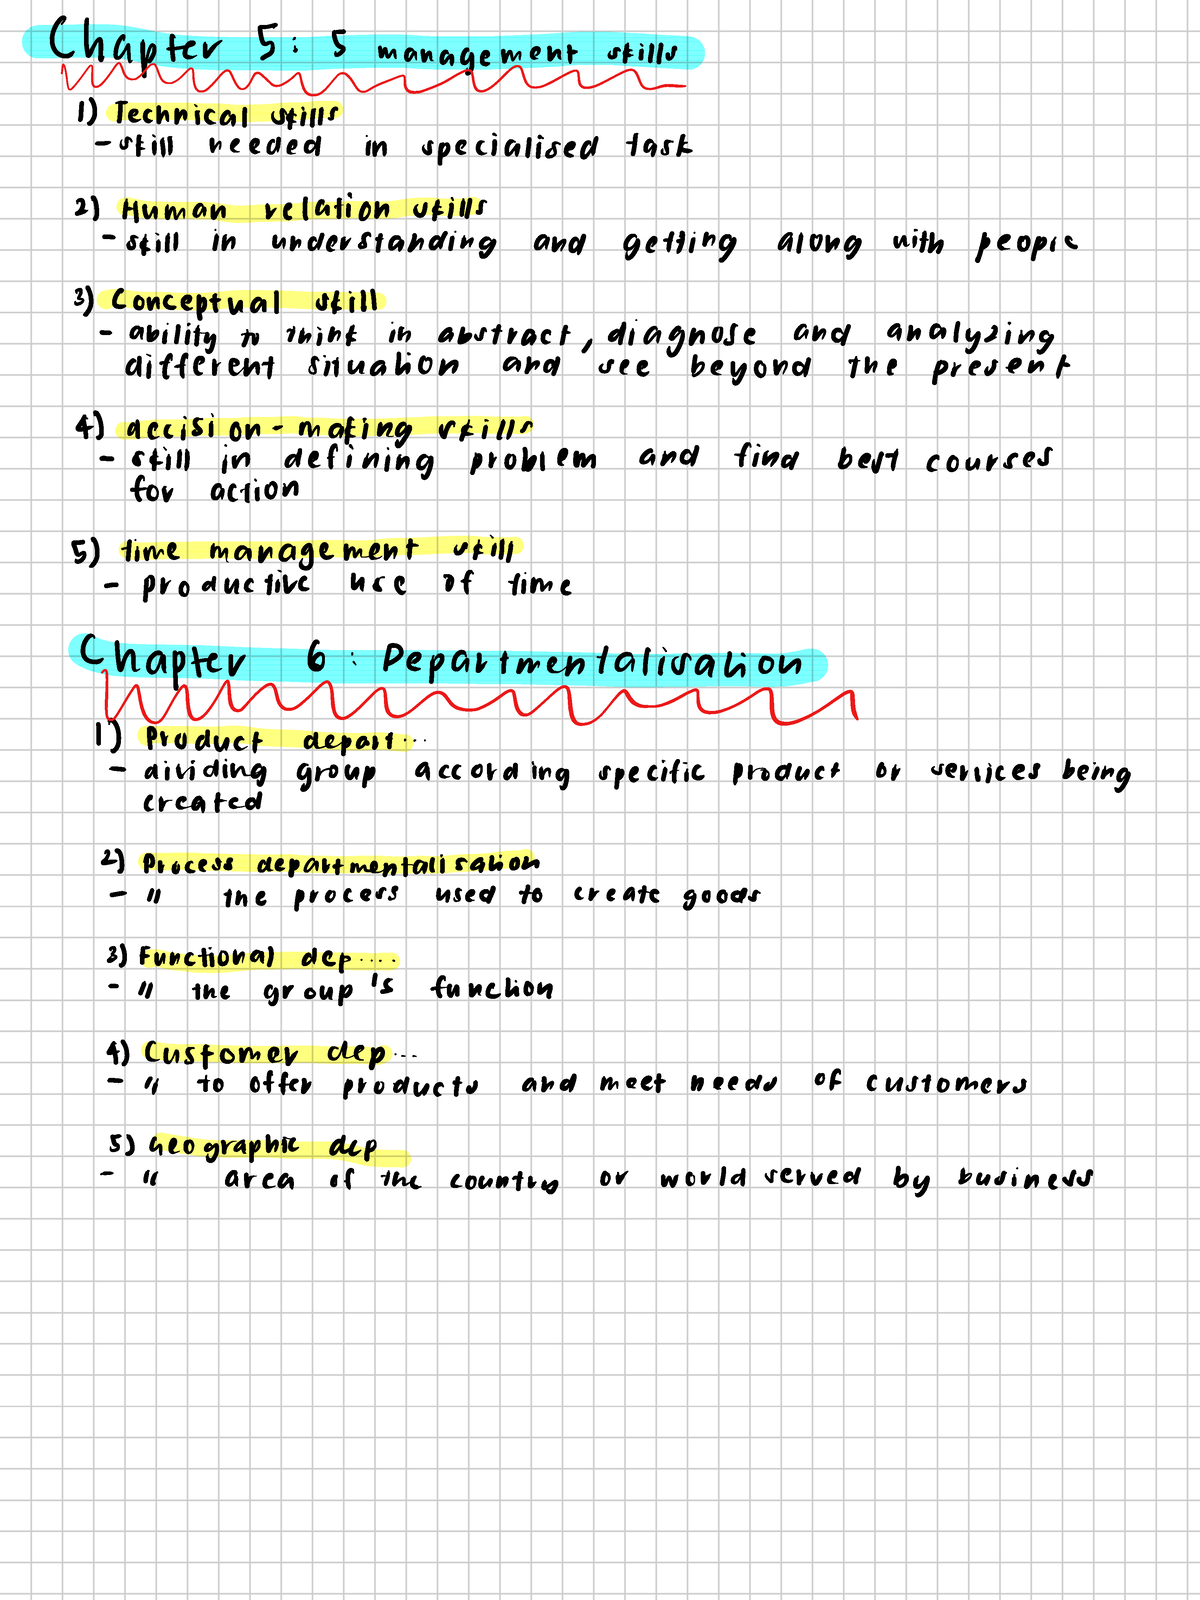 Chapter 5: 5 management skills
1) Technical skills
- skill needed in specialised task
2) Human relation skills
- skill in understanding and getting along with people
3) Conceptual skill
- ability to think in abstract, diagnose and analyzing
different situation and see beyond the present
4) decision-making skills
- skill in defining problem and find best courses
for action
5) time management skill
- productive use of time
Chapter 6: Departmentalisation
1) Product depart...
- dividing group according specific product or services being
created
2) Process departmentalisation
- " the process used to create goods
3) Functional dep....
- " the group's function
4) Customer dep...
- " to offer products and meet needs of customers
5) Geographic dep
- " area of the country or world served by business